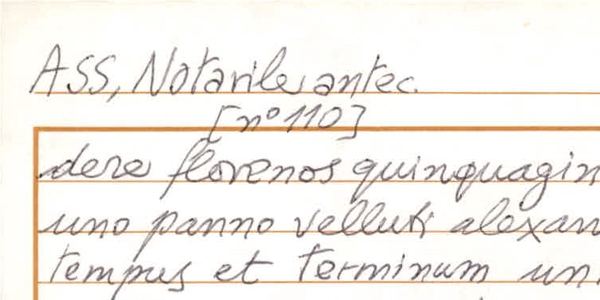 ASS, Notarile antec.
[n° 110]
dere florenos quinquagin
uno panno velluti alexan
tempus et terminum un